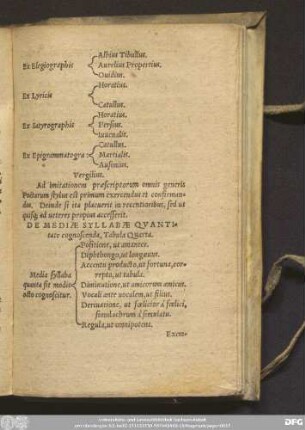 Albius Tibullus.
Ex Elegiographis Aurelius Propertius.
Ouidius.
Horatius.
Ex Lyricis
Catullus.
Horatius.
Ex Satyrographis Persius.
Iuuenalis.
Catullus.
Ex Epigrammatogra- Martialis.
Ausonius.
Vergilius.
Ad imitationem præscriptorum omnis generis
Poëtarum stylus est primum exercendus et confirman-
dus. Deinde si ita placuerit in recentioribus, sed ut
quisq; ad ueteres propius accesserit.
DE MEDIÆ SYLLABÆ QVANTI-
tate cognoscenda, Tabula Quarta.
Positione, ut amantes.
Diphthongo, ut longæuus.
Accentu producto, ut fortuna, cor-
repto, ut tabula.
Media syllaba Diminutione, ut amicorum amicus.
quanta sit modis Vocali ante uocalem, ut filius.
octo cognoscitur. Deriuatione, ut fœliciter à fœlici,
simulachrum à simulatu.
Regula, ut omnipotens.
Exem-
DFG